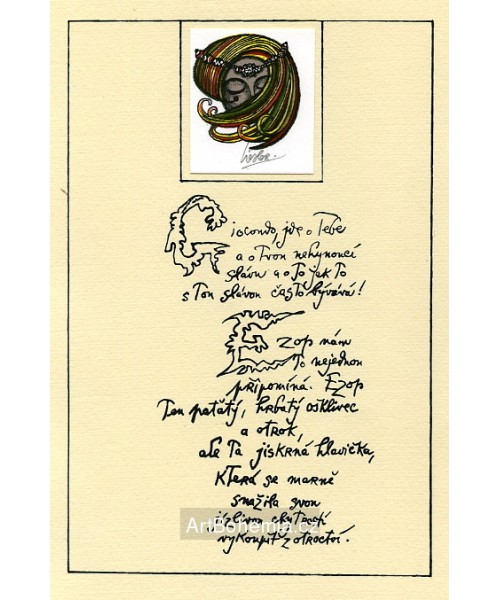 Giocondo, jde o Tebe
a o Tvou nehynoucí
slávu a o To jak To
s Tou slávou často bývává!
Ezop nám
To nejednou
připomíná. Ezop
Ten paťatý, hrbatý osklivec
a otrok,
ale Ta jiskrná hlavička,
KTerá se marně
snažila svou
chytrostí
vykoupit z otroctví.
ArtBohemia.cz